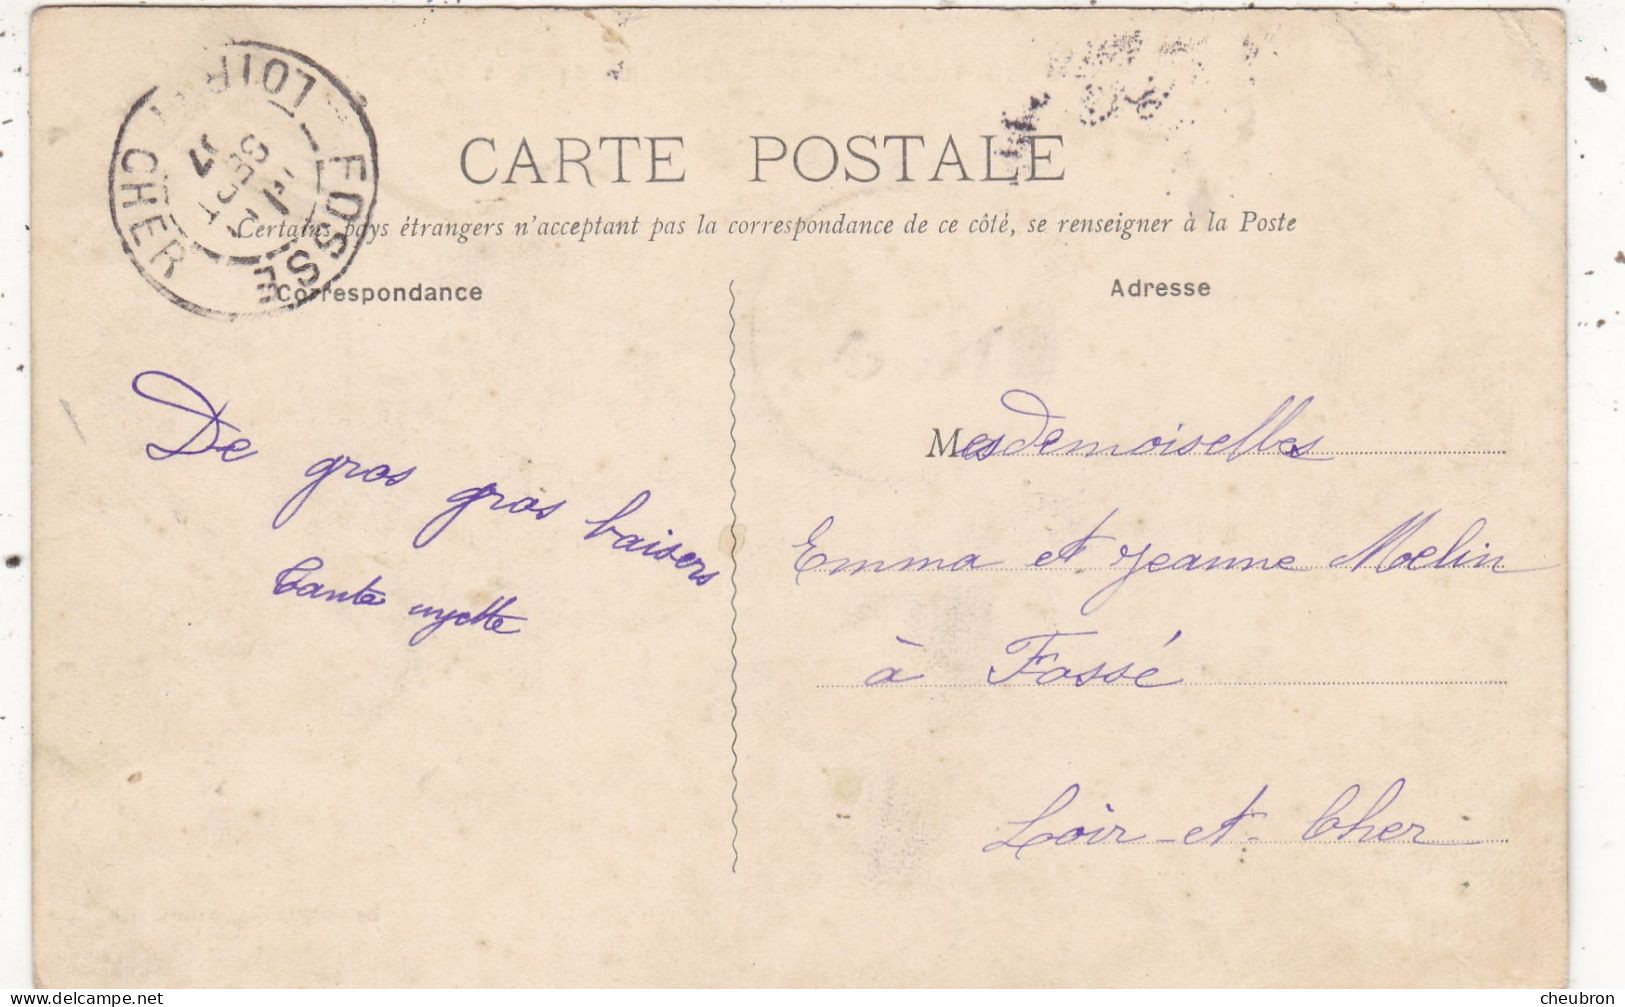 CARTE POSTALE
Certains pays étrangers n'acceptent pas la correspondance de ce côté, se renseigner à la Poste
FOSSÉ
LOIR ET CHER
SEPT
Correspondance
Adresse
De gros gros baisers
Tante
Mesdemoiselles
Emma et Jeanne Moelin
à Fossé
Loir-et-Cher
cheubron@delcampe.net